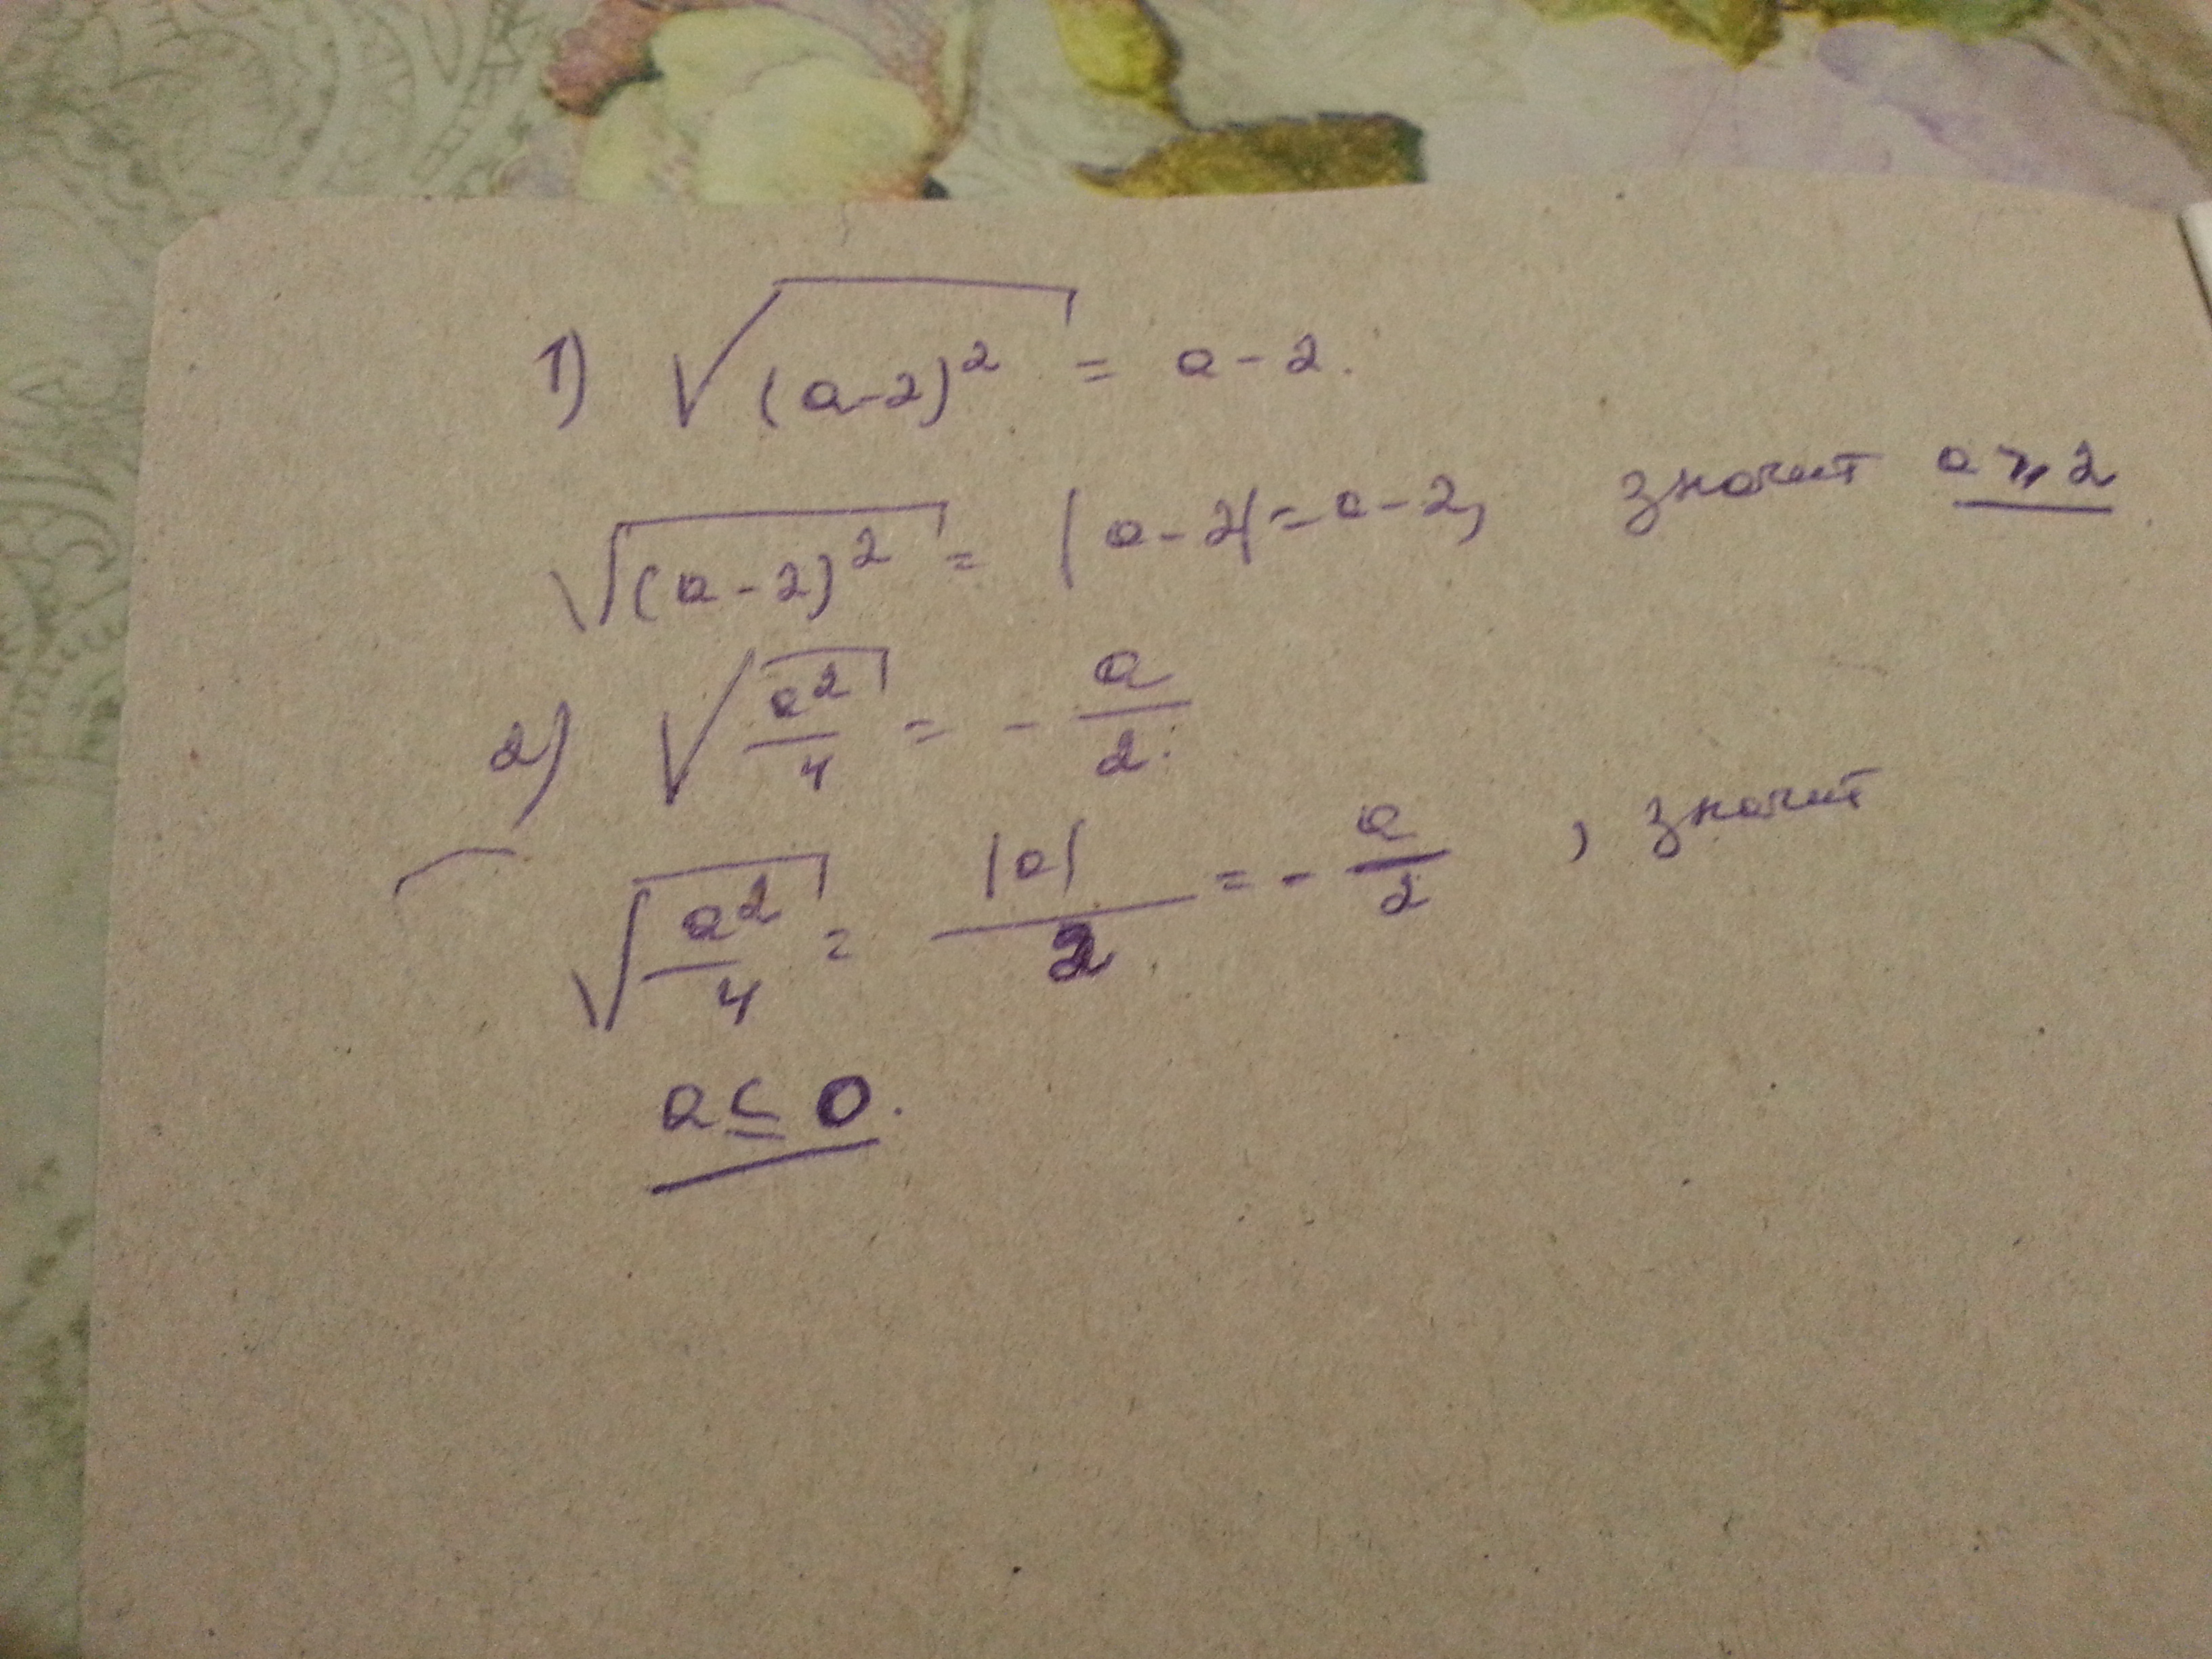 1) √(a-2)² = a-2.
√(a-2)² = |a-2| = a-2, значит a ⩾ 2.
2) √(a²/4) = - a/2.
√(a²/4) = |a|/2 = - a/2, значит
a ≤ 0.